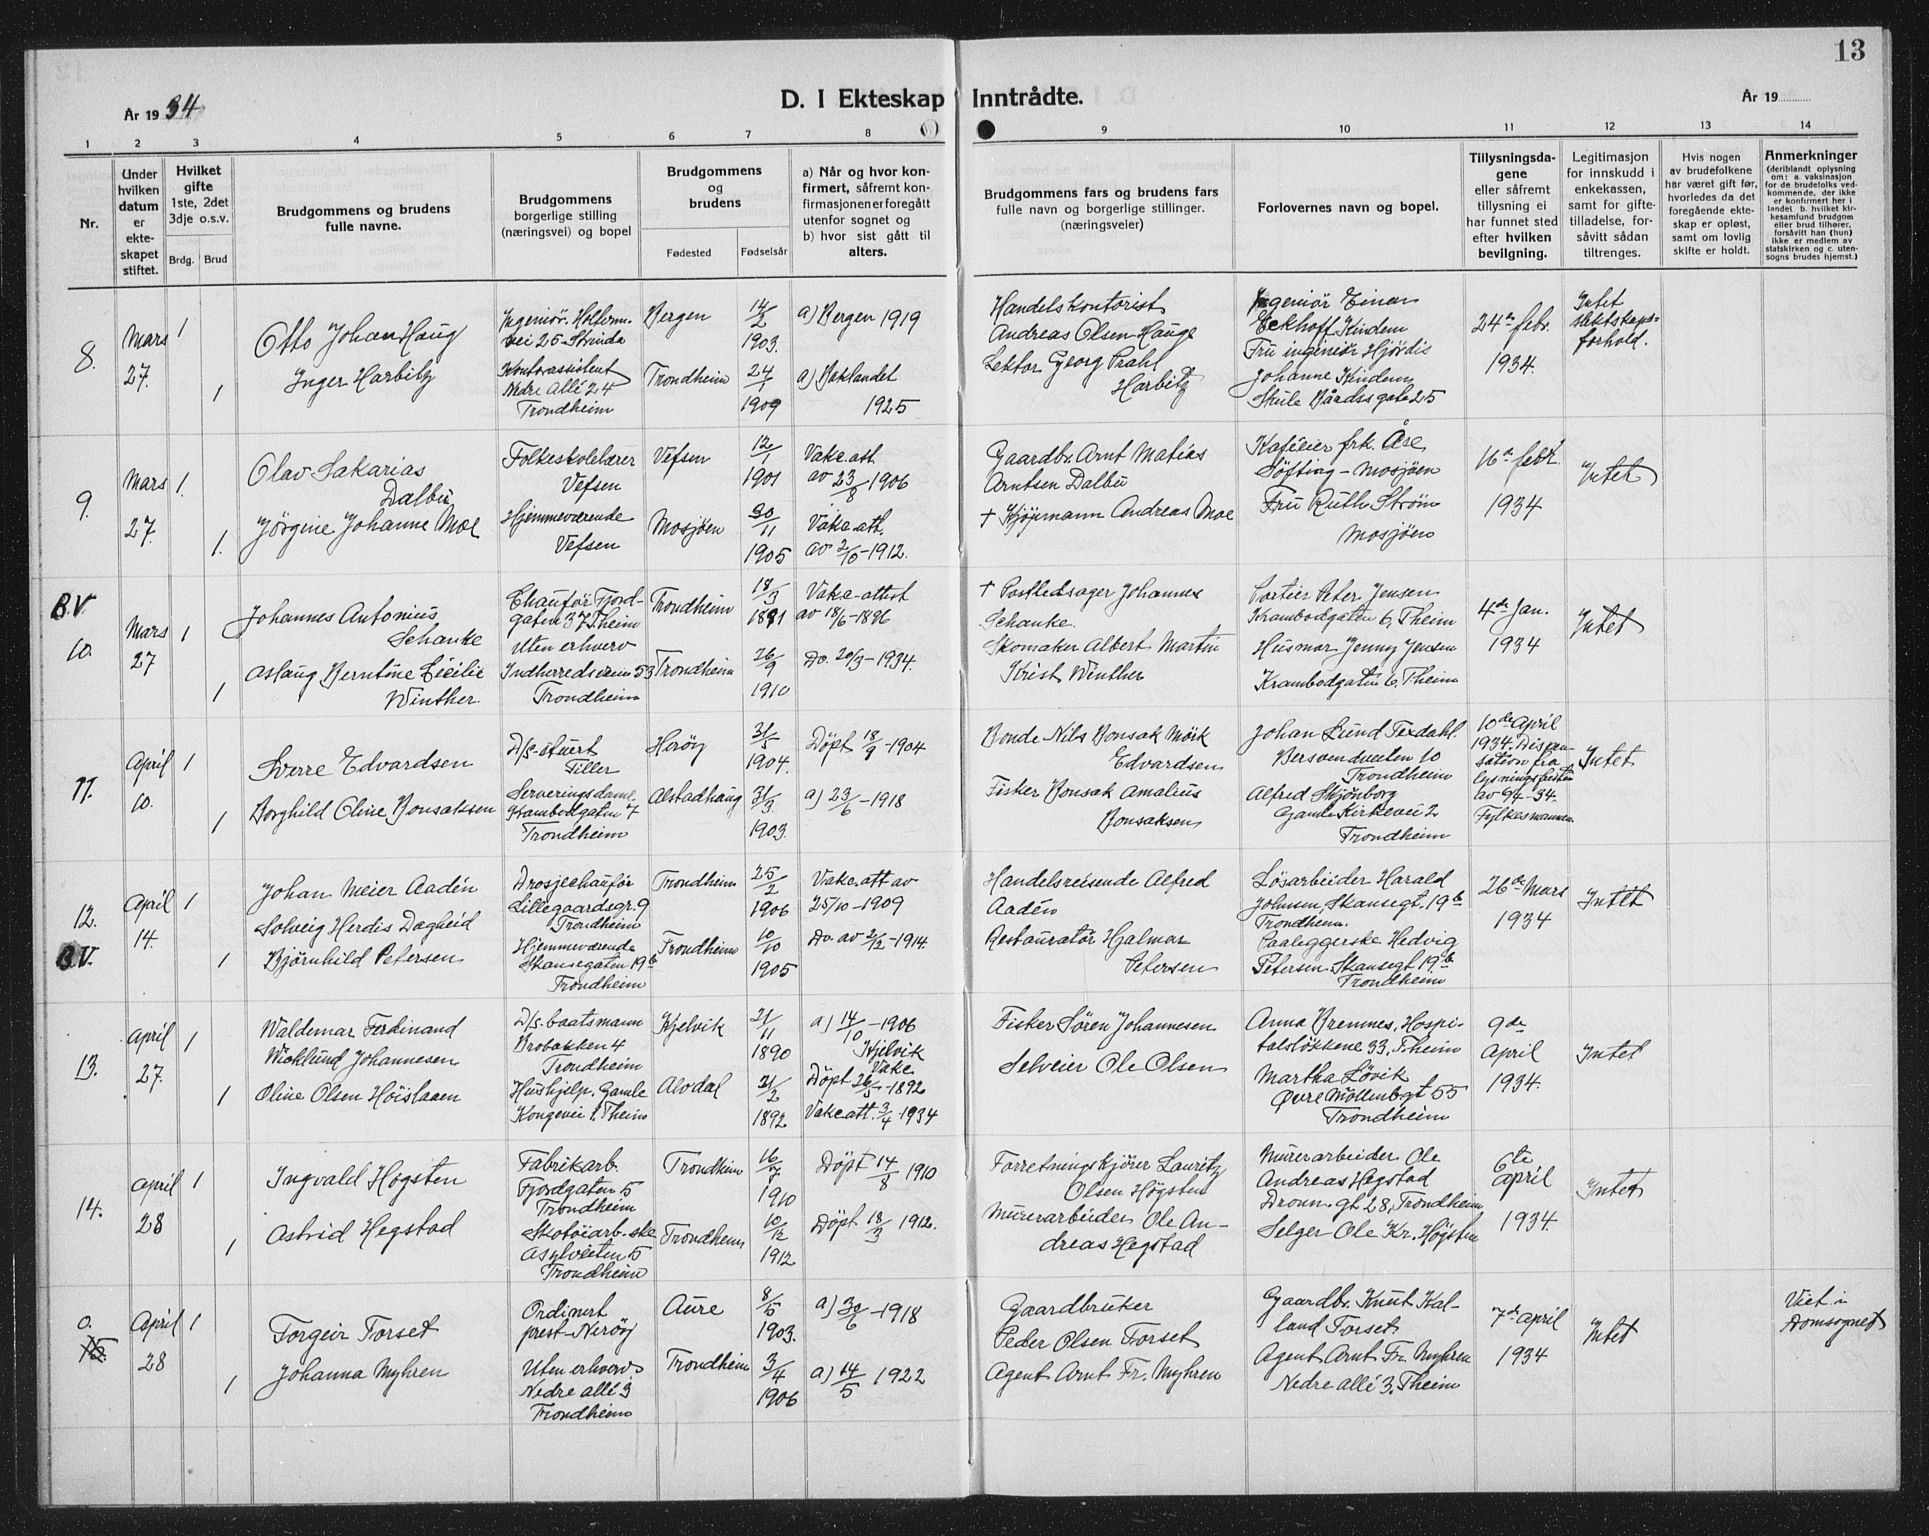 13
År 1934
D. I Ekteskap Inntrådte.
År 19
1 2 3 4 5 6 7 8 9 10 11 12 13 14
Nr.
Under hvilken datum er ekteskapet stiftet.
Hvilket gifte 1ste, 2det 3dje o.s.v.
Brdg. Brud
Brudgommens og brudens
fulle navne.
Brudgommens
borgerlige stilling
(næringsvei) og bopel
Brudgommens
og
brudens
Fødested Fødselsår
a) Når og hvor kon-
firmert, såfremt kon-
firmasjonen er foregått
utenfor sognet og
b) hvor sist gått til
alters.
Brudgommens fars og brudens fars
fulle navn og borgerlige stillinger.
(næringsveier)
Forlovernes navn og bopel.
Tillysningsda-
gene
eller såfremt
tillysning ei
har funnet sted
efter hvilken
bevilgning.
Legitimasjon
for innskudd i
enkekassen,
samt for gifte-
tilladelse, for-
såvitt sådan
tiltrenges.
Hvis nogen
av brudefolkene
har været gift før,
hvorledes da det
foregående ekte-
skap er opløst,
samt om lovlig
skifte er holdt.
Anmerkninger
(deriblandt oplysning
om: a. vaksinasjon
for de brudefolks ved-
kommende, der ikke
er konfirmert her i
landet b. hvilket kir-
kesamfund brudgom
eller brud tilhører,
forsåvitt han (hun)
ikke er medlem av
statskirken og c. uten-
sogns brudes hjemst.)
8.
Mars
27.
1
1
Otto Johan Haug
Inger Harbitz
Ingeniør. Holterm.
vei 25 Strinda
Kontorassistent
Nedre Allé 24
Trondheim
Bergen
14/2
1903.
Trondheim
24/1
1909
a) Bergen 1919
a) Baklandet
1925
Handelskontorist
Andreas Olsen Hauge
Lektor Georg Prahl
Harbitz
Ingeniør Einar
Eckhoff Kindem
Fru ingeniør Hjørdis
Johanne Kindem
Skule Bårdssgate 25
24de febr.
1934.
Intet
slektskaps-
forhold.
9.
Mars
27.
1.
1.
Olav Sakarias
Dalbu
Jørgine Johanne Moe
Folkeskolelærer
Vefsen
Hjemmeværende
Vefsen
Vefsen
12/1
1901
Mosjøen
30/11
1905
Vakc. att.
av 23/8-1906
Vakc. att.
av 2/10-1912.
Gaardbr. Arnt Matias
Arntsen Dalbu
† Kjøpmann Andreas Moe
Kaféeier frk. Åse
Søfting - Mosjøen
Fru Ruth Strøm
Mosjøen
16de febr.
1934
Intet
B.V.
10.
Mars
27
1
1
Johannes Antonius
Schanke
Aslaug Berntine Cicilie
Winther.
Chauffør Fjord-
gaten 37 T.heim
Uten erhverv
Indherredsveien 53
Trondheim
Trondheim
18/3
1891
Trondheim
26/9
1910
Vakc-attest
av 18/6-1896
Do. 20/3-1934.
† Postbedsager Johannes
Schanke.
Skomaker Albert Martin
Krist Winther
Portier Peter Jensen
Krambodgaten 6, T.heim
Husmor Jenny Jensen
Krambodgaten 6, T.heim
4de Jan.
1934
Intet
11.
April
10.
1
1
Sverre Edvardsen
Borghild Oline Bonsaksen
D/s-stuert
Tiller
Serveringsdame,
Krambodgaten 7
Trondheim
Herøy
31/5
1904.
Alstadhaug
31/3
1903.
Døpt 18/9-1904
a) 23/6-1918
Bonde Nils Bonsak Mörk
Edvardsen
Fisker Bonsak Amalius
Bonsaksen
Johan Lund Texdahl.
Bersvendveiten 10
Trondheim
Alfred Skjønborg
Gamle Kirkevei 2
Trondheim
10de April
1934. Dispen-
sation fra
lysningsfristen
av 9/4-34.
Fylkesmannen
Intet
12.
B.V.
April
14.
1
1
Johan Meier Aadén
Solveig Herdis Dagheid
Bjørnhild Petersen
Drosjechauffør
Lillegaardsgr. 9
Trondheim
Hjemmeværende
Skansegaten 19b
Trondheim
Trondheim
25/2
1906
Trondheim
10/10
1905
Vakc. att av
25/10-1909
Do av 2/12-1914.
Handelsreisende Alfred
Aadén
Restauratør Hjalmar
Petersen
Løsarbeider Harald
Johnsen, Skansegt. 19b
Trondheim.
Paaleggerske Hedvig
Petersen, Skansegt 19b
Trondheim
26de Mars
1934
Intet
13.
April
27.
1
1
Waldemar Ferdinand
Wicklund Johannesen
Oline Olsen Höislaaen
D/s-baatsmann
Brobakken 4
Trondheim
Hushjelp, Gamle
Kongevei 1, T.heim
Kjelvik
21/11
1890
Alvdal
21/2
1892
a) 14/10-1906
Kjelvik
Vakc
Døpt 26/5-1892
Vakc att. 3/4-1934
Fisker Søren Johannesen
Selveier Ole Olsen
Anna Bremnes, Hospi-
talsløkkene 33, T.heim
Martha Løvik
Øvre Møllenbgt 55
Trondheim
9de
April
1934.
Intet
14.
April
28
1
1
Ingvald Høgsten
Astrid Hegstad
Fabrikarb.
Fjordgaten 5
Trondheim
Skotöiarb.-ske
Asylveiten 5
Trondheim
Trondheim
16/7
1910
Trondheim
10/12
1912
Döpt 14/8 1910
Döpt 18/3 1912.
Forretningskjører Lauritz
Olsen Høgsten
Murerarbeider Ole An-
dreas Hegstad
Murerarbeider Ole
Andreas Hegstad
Dronn. gt 28, Trondheim
Selger Ole Kr. Høgsten
6te
April
1934.
Intet
0.
15.
April
28
1
1
Torgeir Torset
Johanna Myhren
Ordinert
prest - Nerøy
Uten erhverv
Nedre allé 3
Trondheim
Aure
8/5
1903.
Trondheim
3/4
1906
a) 30/6-1918
a) 14/5 1922
Gaardbruker
Peder Olsen Torset
Agent Arnt Fr. Myhren
Gaardbr. Knut Kal-
land Torset
Agent Arnt Fr. Myhren
Nedre allé 3, T.heim
7de April
1934
Intet
Viet i
Domsognet